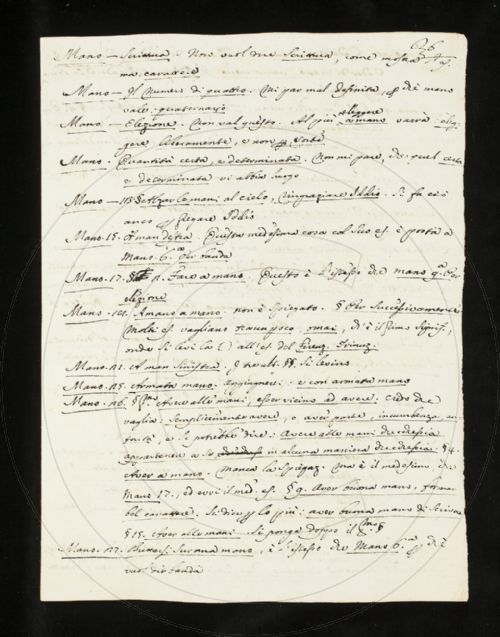 636
Mano — Scrittura. Non vuol dire Scrittura, come
ma carattere
Mano — Il Numero di quattro. Mi par mal definita, di mano
vale quaternario
Mano — Elezione. Non val questo. Al più a leggere a mano varrà eleg-
gere liberamente, e non
Mano. Quantità certa, e determinata. Non mi pare, che quel certa
e determinata vi abbia luogo
Mano — Alzar le mani al cielo, Ringraziare Iddio. Si fa ciò
anco pregare Iddio
Mano. 15. A man destra. Questa medesima cosa col suo es. è posta a
Mano. 6. Per banda
Mano. 17. §. Fare a mano. Questo è l'istesso che mano 9. Per
elezione
Mano. 101. A mano a mano. non è spiegato. § Per Successivamente
Molti es. vagliono fra un poco, omai, ch'è il primo signif.,
onde si levi la ( ) all'es. del Firenz. Trinuz.
Mano. 121. A man sinistra. I §§. Si levino
Mano. 125. Armata mano. Aggiungasi: e con armata mano
Mano. 126. § Aver alle mani, esser vicino ad avere. Credo che
vaglia: Semplicemente avere, o aver
e si potrebbe dire: Avere alle mani che che sia
appartenere a se in alcuna maniera che che sia. § 4.
Aver a mano. Manca la spiegaz. Ma è il medesimo che
Mano 17., ed evvi il med. es. § 9. Aver buona mano, forma
bel carattere. Si dice lo più: aver buona mano di scrivere
§ 15. Aver alle mani. Si ponga doppo il
Mano. 127. Buttosi sur una mano, è l'istesso che Mano 6. ch'è
vuol dir banda